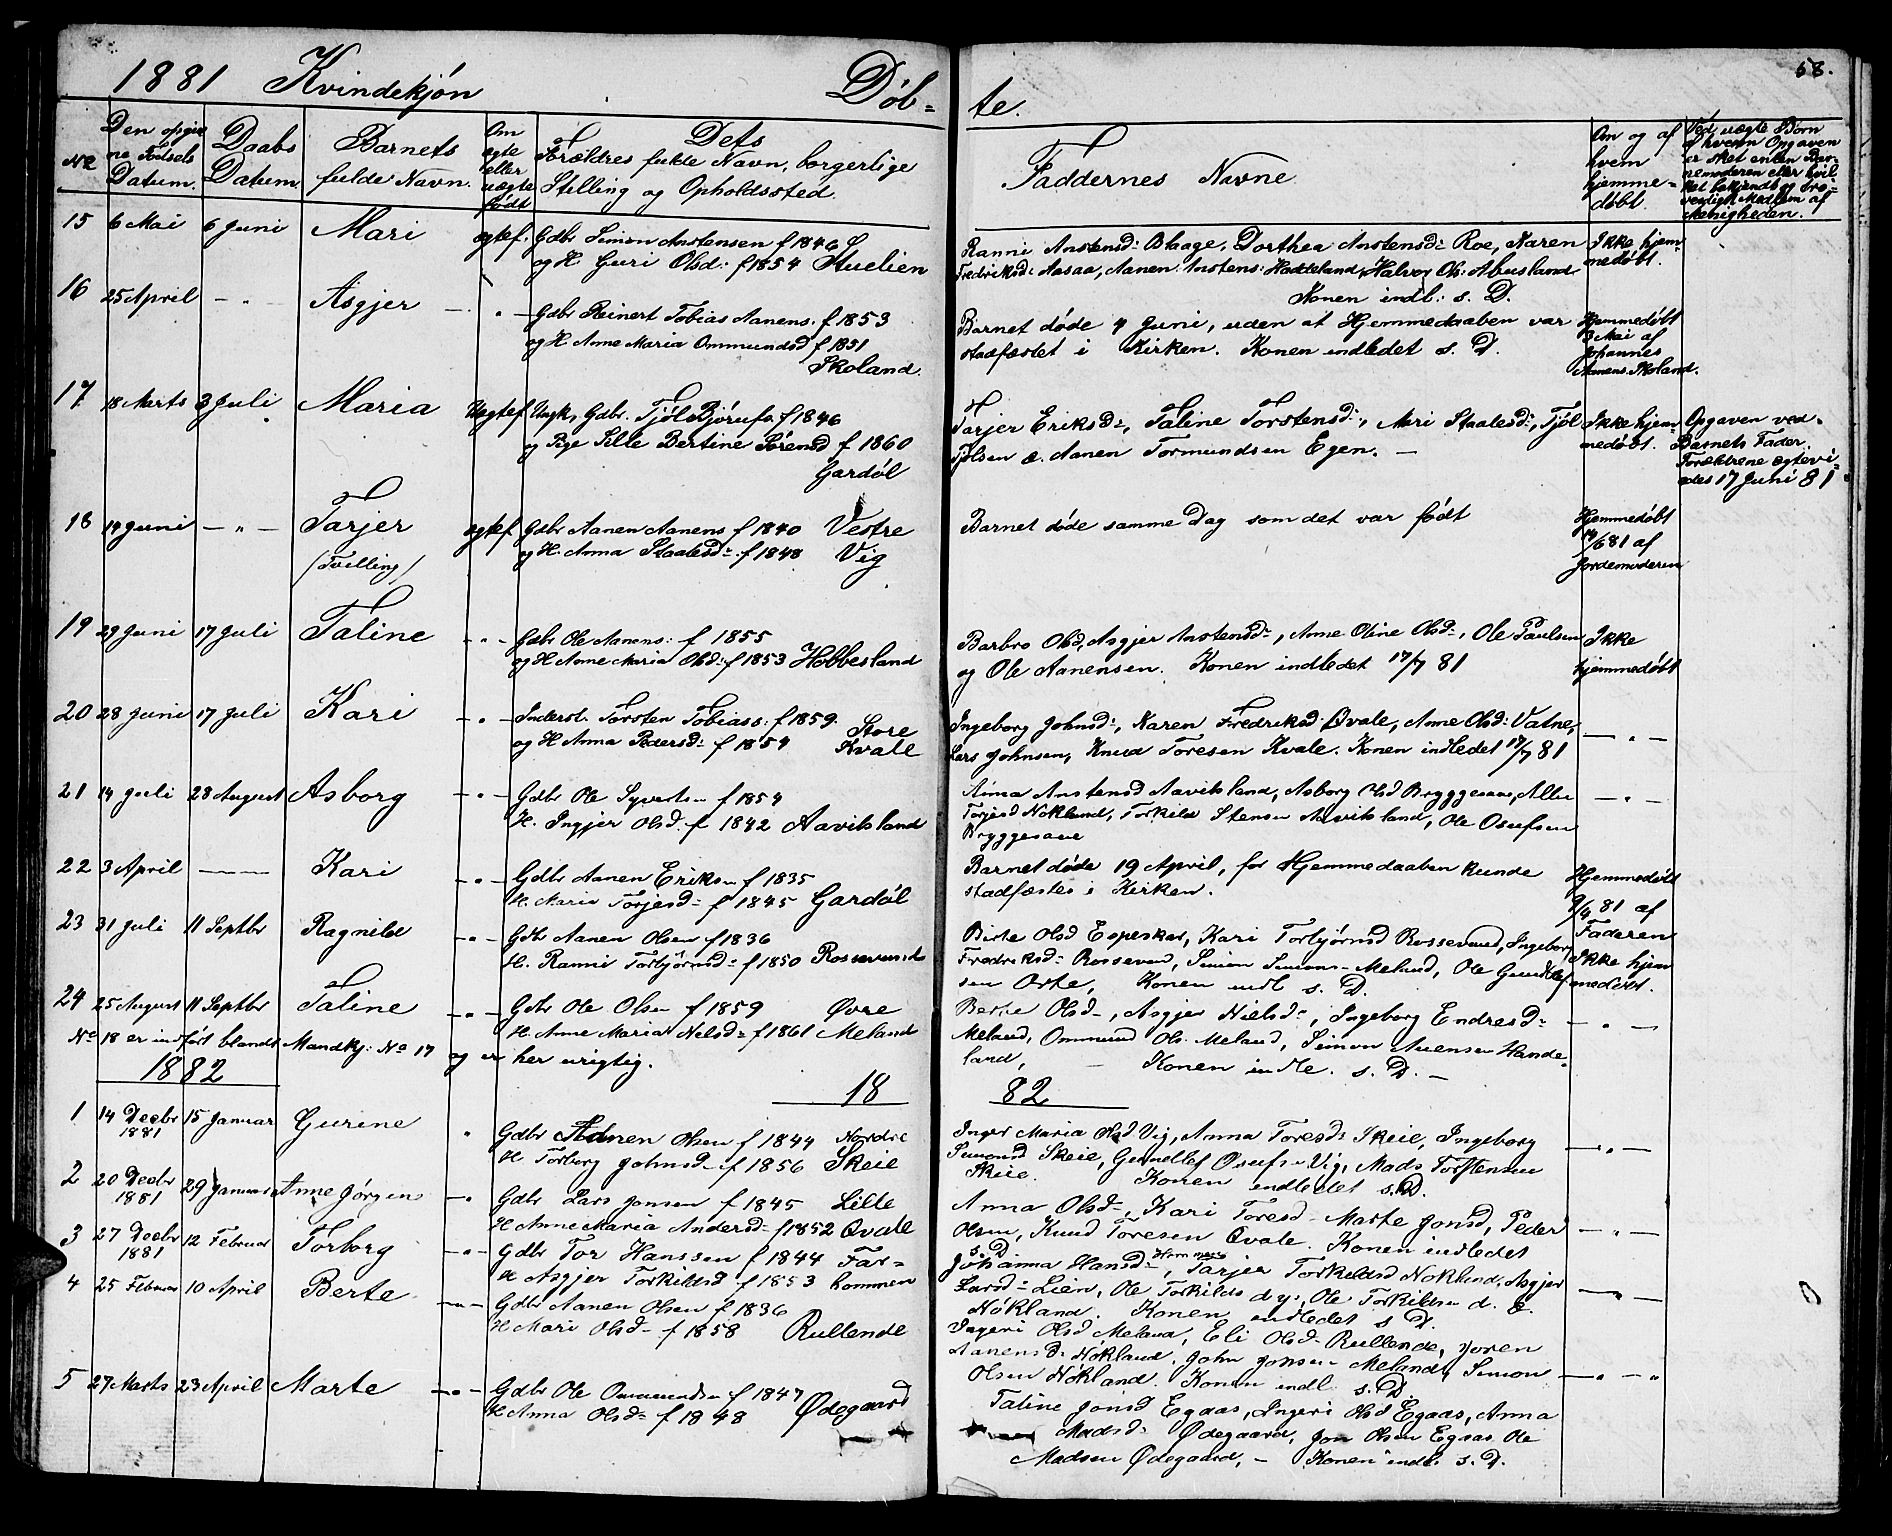 1881 Kvindekjøn Døb-
te.
58.
No
Den opgiv
ne Fødsels
Datum.
Daabs
Datum.
Barnets
fulde Navn.
Om
ægte
eller
uægte
født
Dets
Forældres fulde Navn, borgerlige
Stilling og Opholdssted.
Faddernes Navne
Om og af
hvem
hjemme-
døbt.
Ved uægte Børn
af hvem Opgaven
er sket enten Bar-
nemoderen eller hvil-
ket bekjendt og tro-
værdigt Medlem af
Menigheden.
15 6 Mai 6 Juni Mari ægtef. Gdbr Simon Anstensen f 1846
og H. Guri Olsd: f 1854 Stuelien
Ranni Anstensd: Blaage, Dorthea Anstensd: Roe, Karen Ikke hjem-
Fredriksd: Aasaa, Aanen Anstens: Haddeland, Halvor Ols: Abusland medøbt.
Konen indl: s. D.
16 25 April — " — Asgjer — " — Gdbr Reinert Tobias Aanens: f 1853
og H. Anne Maria Ommundsd f 1851
Skoland.
Barnet døde 4 Juni, uden at Hjemmedaaben var Hjemmedøbt
stadfæstet i Kirken. Konen indledet s. D. 3 Mai af
Johannes
Aanens. Skoland.
17 18 Marts 3 Juli Maria Uægtef. Ungk, Gdbr. Tjøl Bjørufs f 1846
og Pige Sille Bertine Sørensd f 1860
Gardøl
Tarjer Eriksd:, Taline Torstensd:, Mari Staalesd:, Tjøl Ikke hjem-
Tjølsen æ. Aanen Tormundsen Egen. — medøbt.
Opgaven ved
Barnets Fader.
Forældrene ægtevi-
edes 17 Juni 81
18 14 Juni — " — Tarjer ægtef. Gdbr Aanen Aanens f 1840 Vestre
(Tvilling) og H. Anna Staalesd: f 1848 Vig
Barnet døde samme Dag som det var født
Hjemmedøbt
14/6 81 af
Jordemoderen
19 29 Juni 17 Juli Taline — " — Gdbr Ole Aanens: f 1855
og H Anne Maria Olsd: f 1853 Hobbesland
Barbro Olsd, Asgjer Anstensd:, Anne Oline Olsd:, Ole Paulsen Ikke
og Ole Aanensen. Konen indledet 17/7 81 hjemmedøbt
20 28 Juni 17 Juli Kari — " — Inderst. Torsten Tobiass: f 1859. Store
og H Anna Pedersd: f 1854 Kvale
Ingeborg Johnsd:, Karen Fredriksd: Qvale, Anne Olsd: Vatne,
Lars Johnsen, Knud Toresen Kvale. Konen indledet 17/7 81 — " —
21 14 Juli 28 August Asborg — " — Gdbr Ole Syverts— f 1854
H. Ingjer Olsd: f 1842 Aavitsland
Anna Anstensd Aavitsland, Asborg Olsd Bryggesaae, Allis
Torjesd Nøkland, Torkild Stensen Aavitsland, Ole Osufsen — " —
Bryggesaae
22 3 April — — Kari — " — Gdbr Aanen Eriks— f 1835
H. Maria Torjesd: f 1845 Gardøl
Barnet døde 19 April, før Hjemmedaaben kunde Hjemmedøbt
stadfæstes i Kirken. 9/4 81 af
Faderen
23 31 Juli 11 Septbr Ragnild — " — Gdbr Aanen Olsen f 1836
H. Ranni Torbjørnsd: f 1850 Rossevand
Birte Olsd Espeskar, Kari Torbjørnsd Rossevand, Ingeborg
Fredriksd: Rossevand, Simon Simons— Meland, Ole Gundlef- Ikke hjem
sen Orte, Konen indl s. D. medøbt.
24 25 August 11 Septbr Taline — " — Gdbr Ole Olsen f 1859 Øvre
H. Anne Maria Nelsd: f 1861 Meland
Berte Olsd—, Asgjer Nielsd:, Ingeborg Endresd:
Meland, Ommund Ols. Meland, Simon Auensen Hande- — " —
land, Konen indle. s. D. —
No 18 er indført blandt Mandkj: No 17 og er her urigtig.
1882
18 82
1 14 Decbr 1881 15 Januar Gurine " Gdbr Aanen Olsen f 1844 Nordre
H Torborg Johnsd— f 1856 Skeie
Inger Maria Olsd Vig, Anna Toresd: Skeie, Ingeborg
Simonsd Skeie, Gunnellef Osufs— Vig, Mads Torstensen — " —
Skeie. Konen indledet s. D.
2 20 Decbr 1881 29 Januar Anne Jørgens — " Gdbr Lars Jonsen f 1845 Lille
H Anne Maria Andersd: f 1852 Qvale
Anna Olsd—, Kari Toresd— Marte Jonsd, Peder
Olsen, Knud Toresen Qvale. Konen indledet — " —
s. D.
3 27 Decbr 1881 12 Februar Torborg — " — Gdbr Tor Hanssen f 1844 Far-
H Asgjer Torkildsd f 1853 kommen
Johanna Hansd:, Tarjer Torkeldsd Nokland, Asgjer
Larsd— Lien, Ole Torkilds d y, Ole Torkildsen d. æ. — " —
Nökland. Konen indledet s. D.
4 25 Februar 10 April Berte — " — Gdbr Aanen Olsen f 1836
H Mari Olsd— f 1858 Rullende
Ingeri Olsd Meland, Eli Olsd— Rullende, Joren
Aanensd: Nökland, John Jonsen Meland, Simon
Olsen Nökland. Konen indl s. D. — " — "
5 27 Marts 23 April Marte — " — Gdbr Ole Ommundsen f 1847
H Anna Olsd: f 1848 Ødegaard
Taline Jonsd Egaas, Ingeri Olsd Egaas, Anna
Madsd: Ødegaard, Jon Olsen Egaas, Ole
Madsen Ødegaard, — Konen indl. s. D.